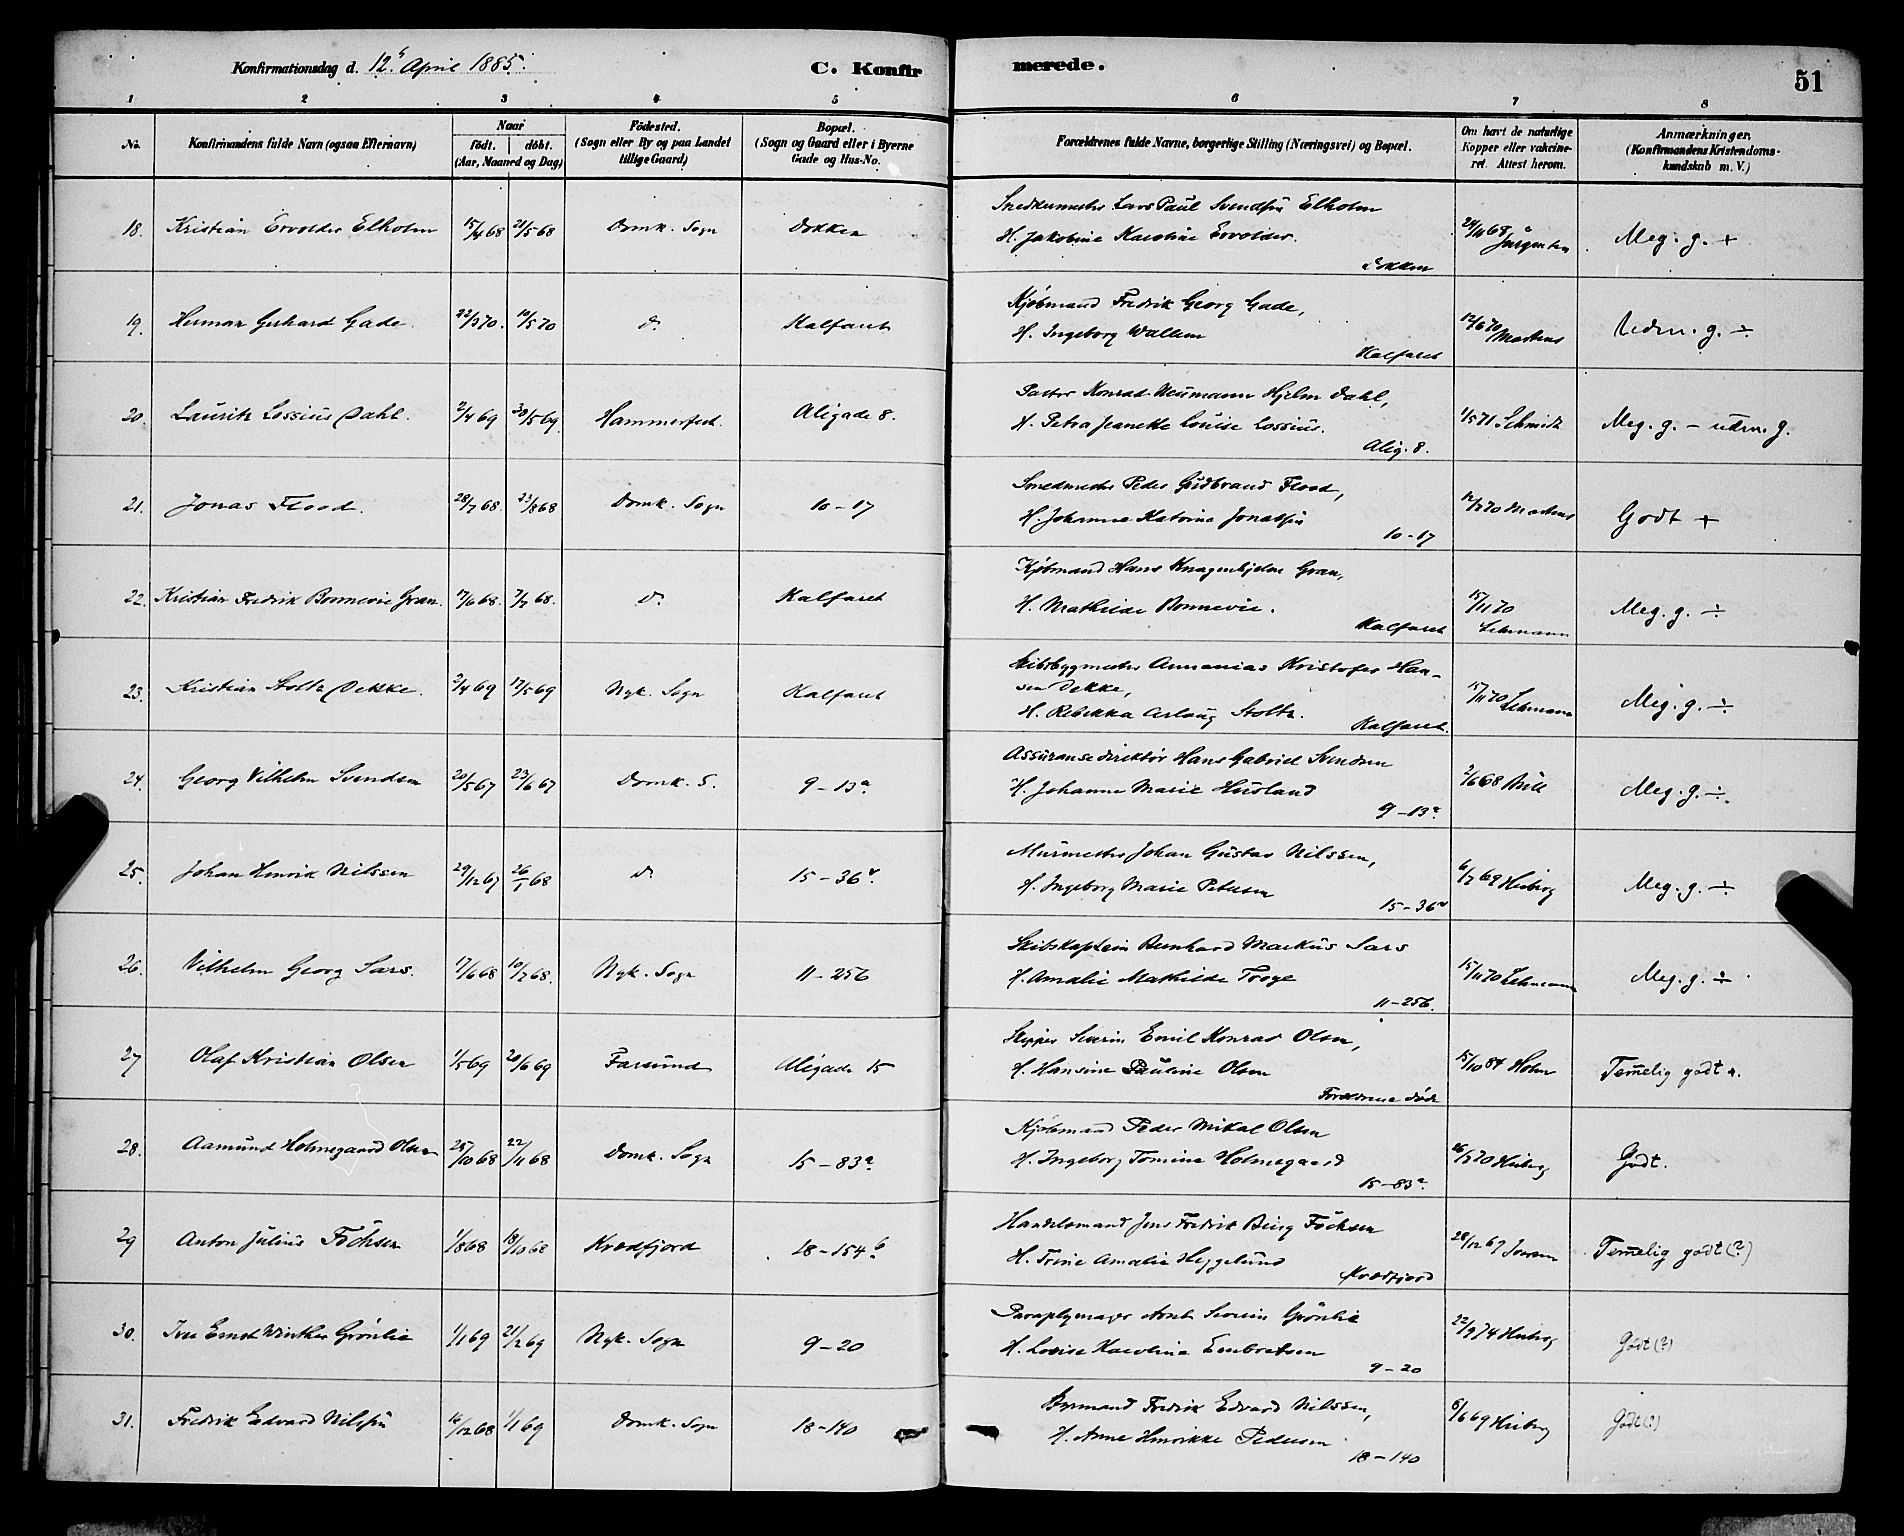 Konfirmationsdag d. 12. April 1885.
C. Konfirmerede.
51
1 2 3 4 5 6 7 8
No. Konfirmandens fulde Navn (ogsaa Efternavn) Naar født. døbt. (Aar, Maaned og Dag) Fødested. (Sogn eller By og paa Landet tillige Gaard) Bopæl. (Sogn og Gaard eller i Byerne Gade og Hus-No. Forældrenes fulde Navne, borgerlige Stilling (Næringsvei) og Bopæl. Om havt de naturlige Kopper eller vakcineret. Attest herom. Anmærkninger. (Konfirmandens Kristendomskundskab m. V.)
18. Kristian Ervolder Elholm 15/4 68 21/5 68 Domk. Sogn Dokken Snedkermester Lars Paul Svendsen Elholm
H. Jakobine Karoline Ervolder. Dokken 24/11 68 Jürgensen Meg. g. +
19. Herman Gerhard Gade. 22/3 70. 10/5 70 do Kalfaret Kjøbmand Fredrik Georg Gade,
H. Ingeborg Wallem Kalfaret 12/6 70 Martens Udm. g. ÷
20. Lauritz Lossius Dahl. 2/4 69 30/5 69. Hammerfest. Aligade 8. Pastor Konrad Neumann Hjelm Dahl,
H. Petra Jeanette Louise Lossius. Alig. 8. 1/5 71 Schmidt Meg. g. - udm. g.
21. Jonas Flood. 28/7 68. 23/8 68 Domk. Sogn 10-17 Smedmester Peder Gudbrand Flood,
H. Johanne Katrine Jonassen 10-17 Martens Godt +
22. Kristian Fredrik Bonnevie Gran. 17/6 68. 7/7 68. do Kalfaret Kjøbmand Hans Knagenhjelm Gran,
H. Mathilde Bonnevie. Kalfaret 15/11 70 Lehmann Meg. g. ÷
23. Kristian Stoltz Dekke. 2/4 69 17/5 69 Nyk. Sogn Kalfaret Skibsbygmester Annanias Kristofer Han-
sen Dekke,
H. Rebekka Aslaug Stoltz. Kalfaret. 15/11 70 Lehmann Meg. g. ÷
24. Georg Vilhelm Svendsen 20/5 67 23/6 67 Domk. S. 9-13a Assuransedirektør Hans Gabriel Svendsen
H. Johanne Marie Husland 9-13a 2/6 68 Bull Meg. g. ÷
25. Johan Henrik Nilssen 29/12 67 26/1 68 do 15-36 Murmester Johan Gustav Nilssen,
H. Ingeborg Marie Petersen 15-36 6/7 69 Heiberg Meg. g. ÷
26. Vilhelm Georg Sars. 17/6 68 10/7 68. Nyk. Sogn 11-256 Skibskaptein Bernhard Markus Sars
H. Amalie Mathilde Troye 11-256. 15/11 70 Lehmann Meg. g. ÷
27 Olaf Kristian Olsen 1/5 69 20/6 69 Farsund Aligade 15 Skipper Severin Emil Konrad Olsen,
H. Hansine Pauline Olsen Forældrene døde 15/10 84 Holm Temmelig godt
28. Aamund Holmegaard Olsen 25/10 68 22/11 68 Domk. Sogn 15-83a Kjøbmand Peder Mikal Olsen
H. Ingeborg Tomine Holmegaard 15-83a. Heiberg Godt.
29 Anton Julius Fochsen 1/8 68 18/10 68 Kvædfjord 18-154b Handelsmand Jens Fredrik Berg Fochsen
H. Trine Amalie Heggelund Kvædfjord 28/12 69 Temmelig godt (?)
30. Iver Ernst Winther Grönlie 1/1 69 21/2 69 Nyk. Sogn 9-20 Paraplymager Arnt Severin Grönlie
H. Lovise Karoline Embretsen 9-20 22/9 74 Heiberg Godt (?)
31. Fredrik Edvard Nilssen 16/12 68 1/1 69 Domk. Sogn 18-140 Bymand Fredrik Edvard Nilssen,
H. Anne Henrikke Pedersen 18-140 6/6 69 Heiberg Godt (?)